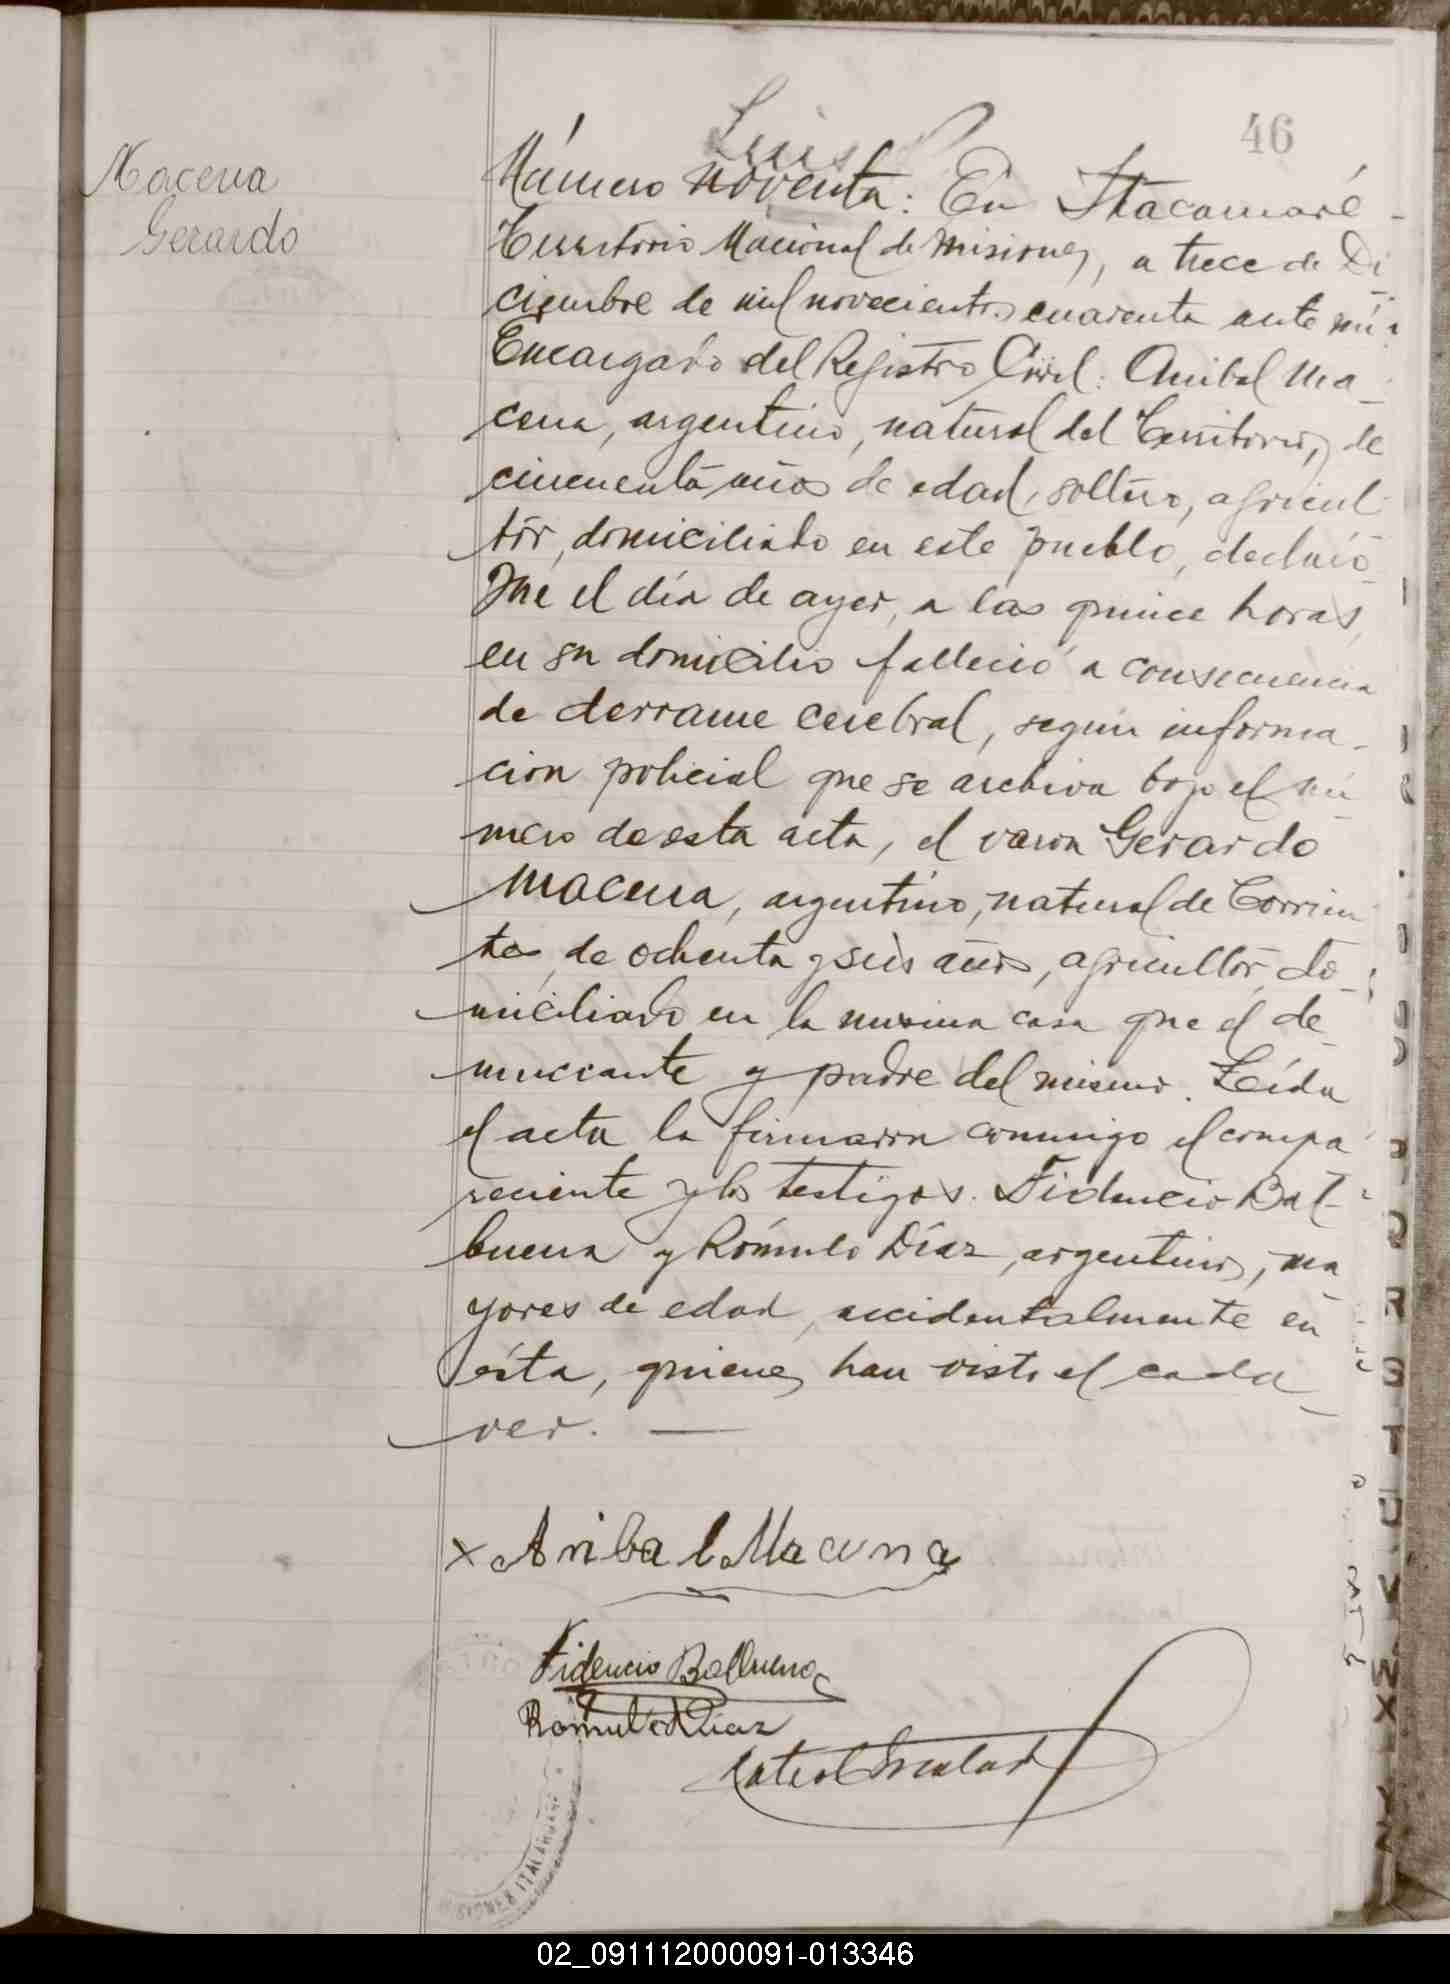 46
Macena
Gerardo
Luis
Número noventa: En Itacaruaré
Territorio Nacional de Misiones, a trece de Di
ciembre de mil novecientos cuarenta ante mí
Encargado del Registro Civil: Anibal Ma
cena, argentino, natural del Territorio, de
cincuenta años de edad, soltero, agricul
tor, domiciliado en este pueblo, declaró
Que el día de ayer, a las quince horas,
en su domicilio falleció a consecuencia
de derrame cerebral, según informa-
cion policial que se archiva bajo el nú
mero de esta acta, el varon Gerardo
Macena, argentino, natural de Corrien
tes, de ochenta y seis años, agricultor, do-
miciliado en la misma casa que el de-
nunciante y padre del mismo. Leída
el acta la firmaron conmigo el compa
reciente y los testigos. Fidencio Bal-
buena y Rómulo Díaz, argentinos, ma
yores de edad, accidentalmente en
ésta, quienes han visto el cada-
ver. —
x Anibal Macena
Fidencio Balbuena
Romulo Diaz
Q
R
S
T
U
V
W
X
Y
Z
02_091112000091-013346